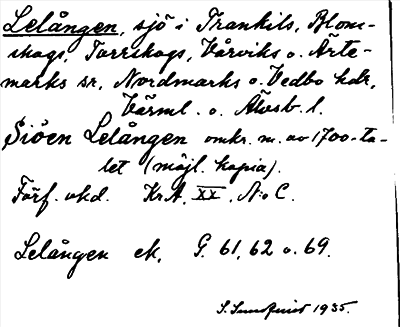 Lelången, sjö i Trankils, Blom-
skogs, Torrskogs, Vårviks o. Ärte-
marks sr, Nordmarks o. Vedbo hdr,
Värml. o. Älvsb. l.
Siöen Lelången omkr. m. av 1700-ta-
let (möjl. kopia).
Förf. okd. Kr.A. XX, N:o C.
Lelången ek. G. 61, 62 o. 69.
S. Sundquist 1935.